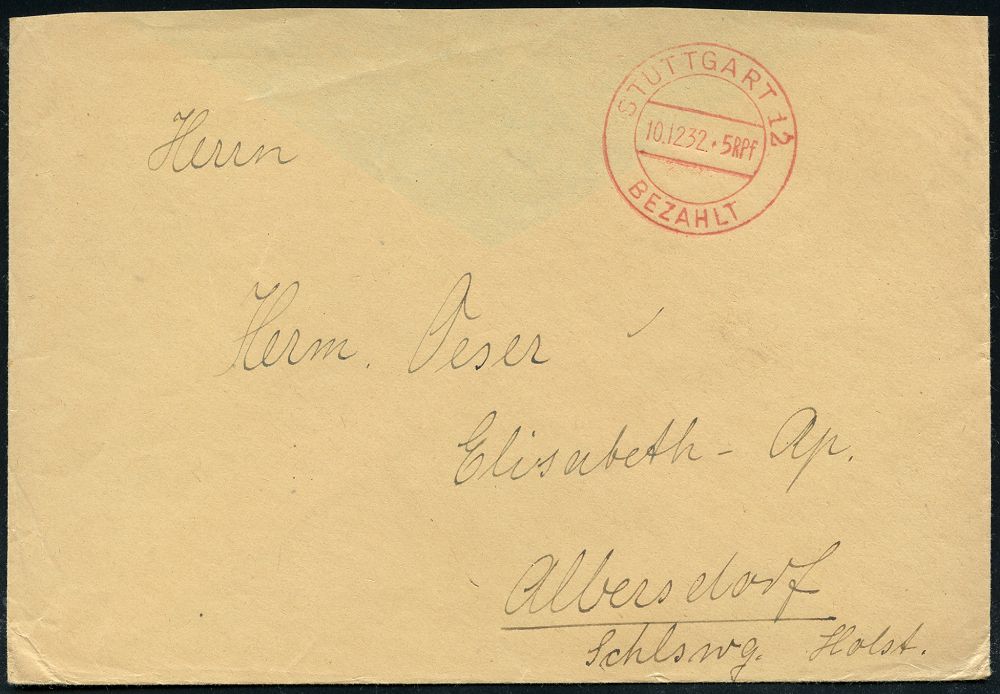 STUTTGART 12
10.12 32. • 5RPf
BEZAHLT
Herrn
Herm. Oeser
Elisabeth - Ap.
Albersdorf
Schlswg. Holst.